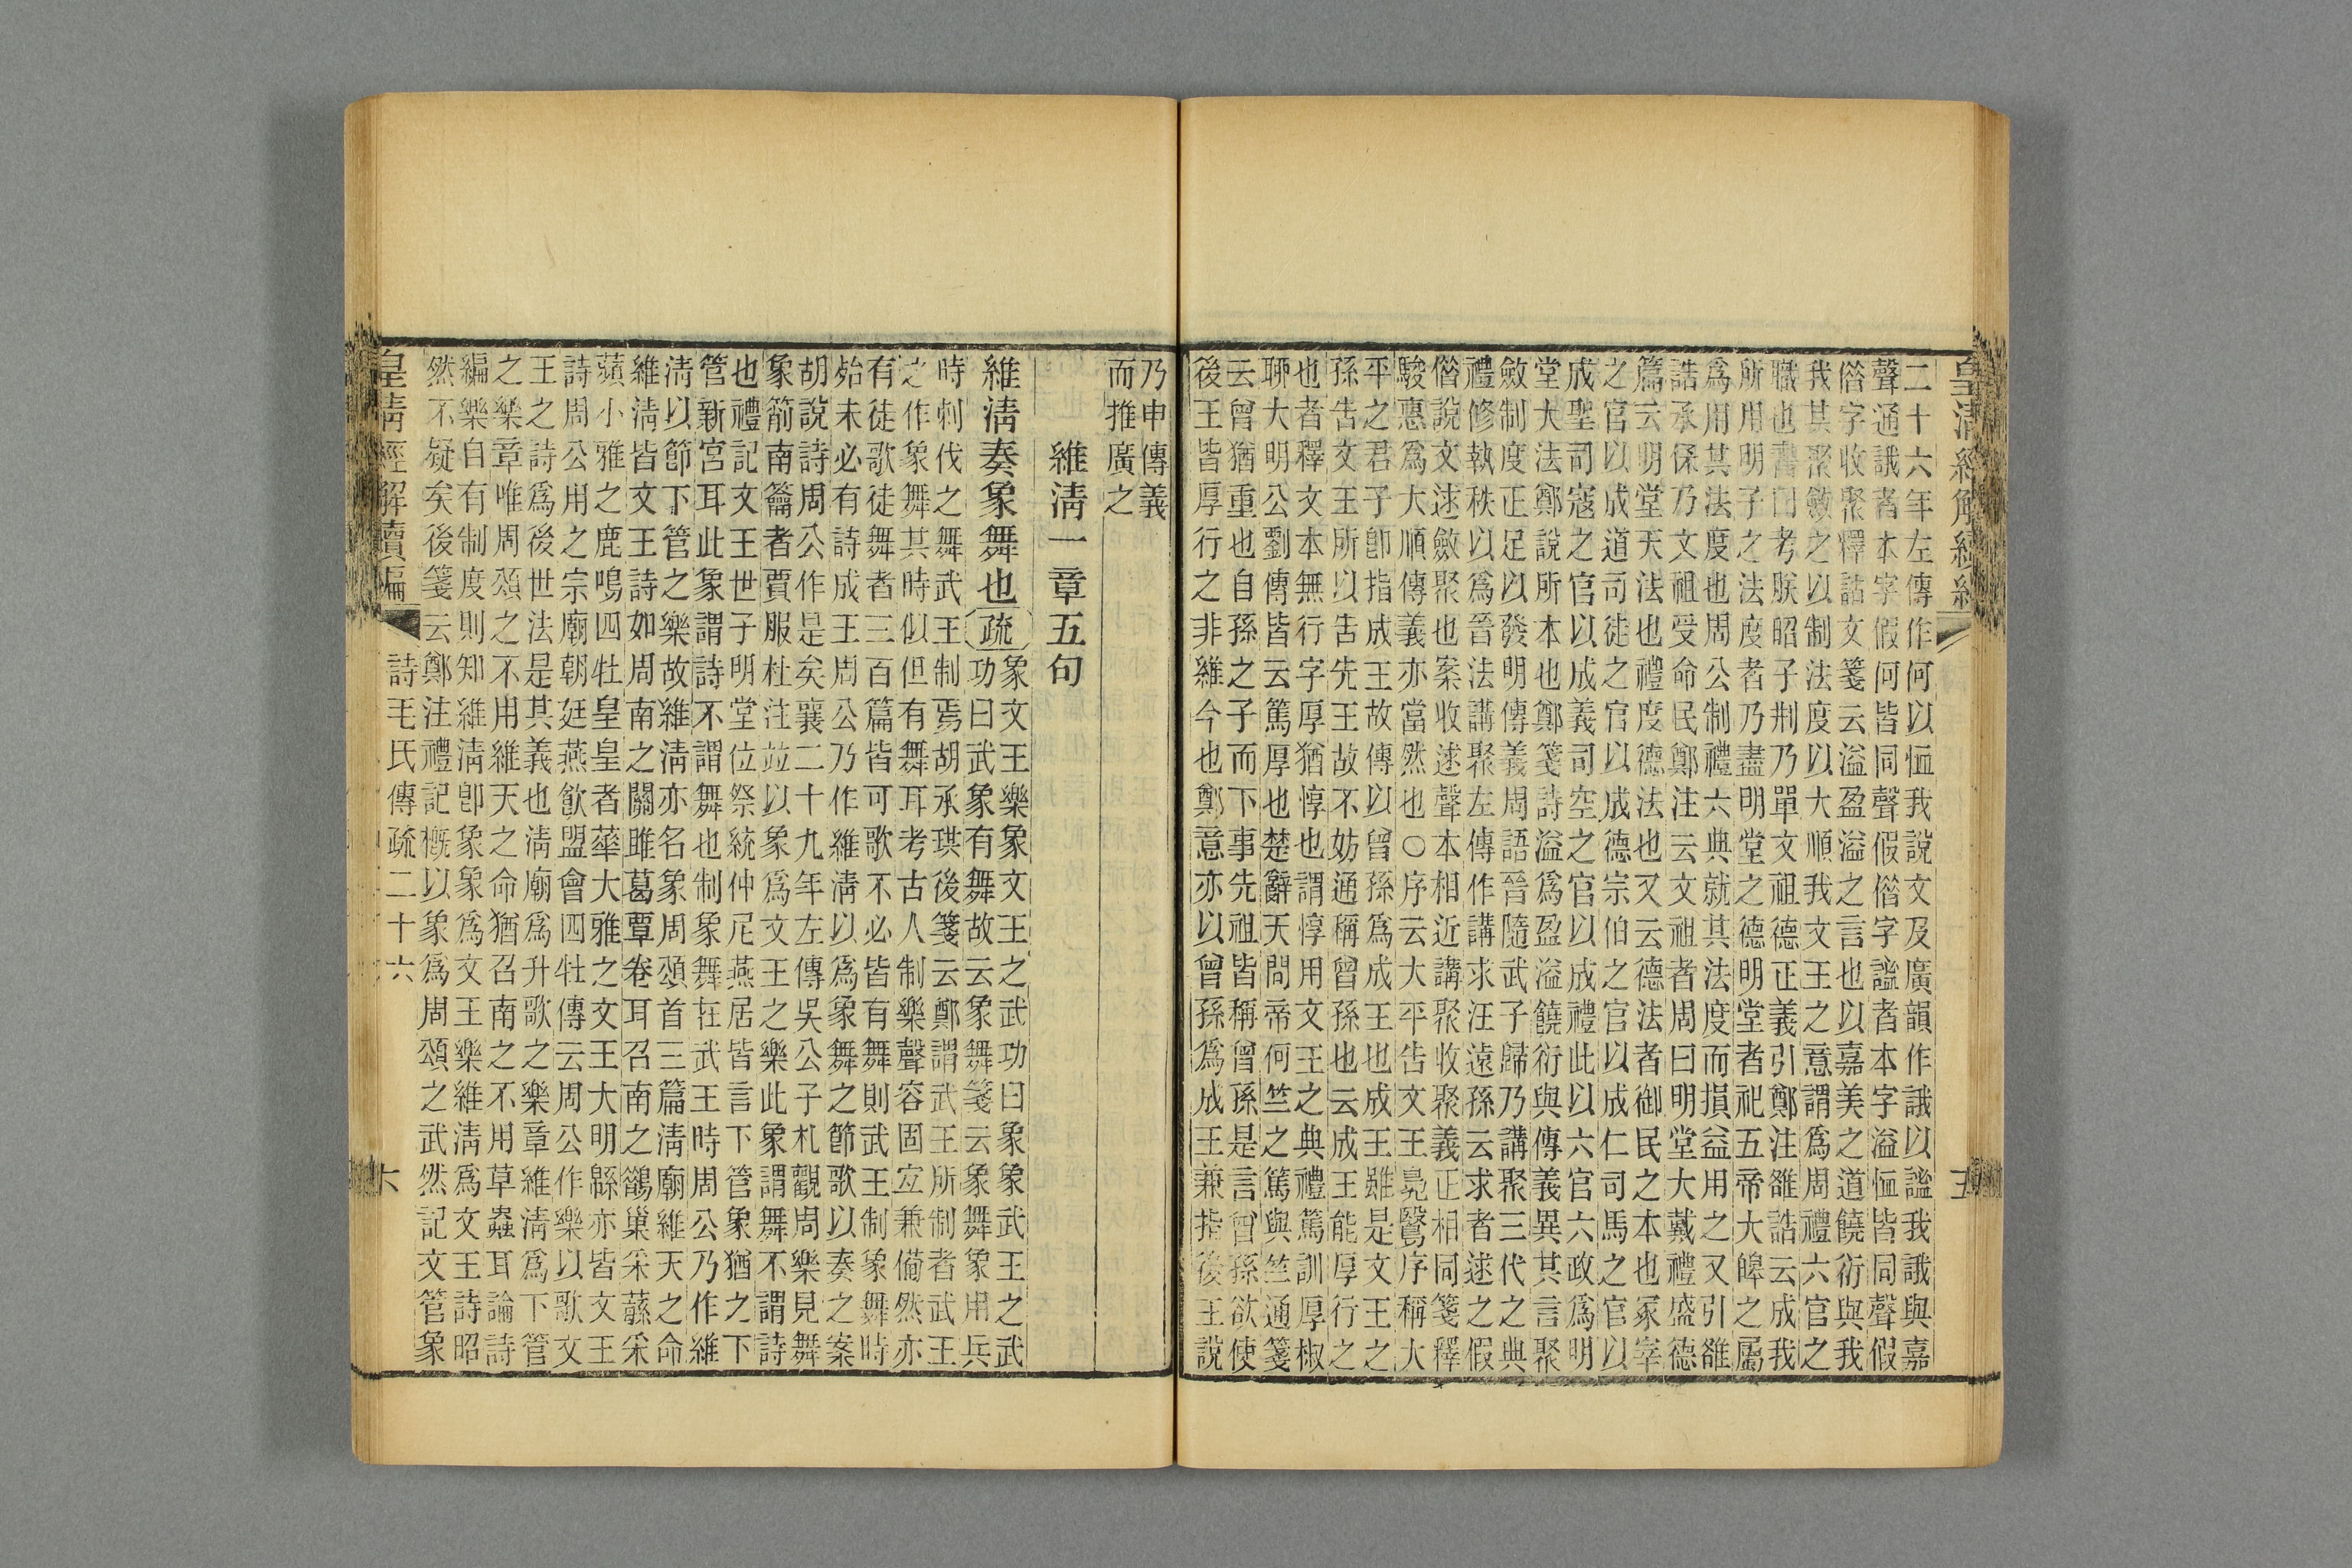 二十六年左傳作何以恤我說文及廣韻作誐以謐我誐與嘉
聲通誐者本字假何皆同聲假借字謐者本字溢恤皆同聲假
借字收聚釋詁文箋云溢盈溢之言也以嘉美之道饒衍與我
我其聚斂之以制法度以大順我文王之意謂爲周禮六官之
職也書曰考朕昭子刑乃單文祖德正義引鄭注雒誥云成我
所用明子之法度者乃盡明堂之德明堂者祀五帝大皞之屬
爲用其法度也周公制禮六典就其法度而損益用之又引雒
誥承保乃文祖受命民鄭注云文祖者周曰明堂大戴禮盛德
篇云明堂天法也禮度德法也又云德法者御民之本也冢宰
之官以成道司徒之官以成德宗伯之官以成仁司馬之官以
成聖司寇之官以成義司空之官以成禮此以六官六政爲明
堂大法鄭說所本也鄭箋詩溢爲盈溢饒衍與傳義異其言聚
斂制度正足以發明傳義周語晉隨武子歸乃講聚三代之典
禮修執秩以爲晉法講聚左傳作講求汪遠孫云求者逑之假
借說文逑斂聚也案收逑聲本相近講聚收聚義正相同箋釋
駿惠爲大順傳義亦當然也○序云大平告文王鳧鷖序稱大
平之君子卽指成王故傳以曾孫爲成王也成王雖是文王之
孫告文王所以告先王故不妨通稱曾孫也云成王能厚行之
也者釋文本無行字厚猶惇也謂惇用文王之典禮篤訓厚椒
聊大明公劉傳皆云篤厚也楚辭天問帝何竺之篤與竺通箋
云曾猶重也自孫之子而下事先祖皆稱曾孫是言曾孫欲使
後王皆厚行之非維今也鄭意亦以曾孫爲成王兼指後王說
乃申傳義
而推廣之
維淸一章五句
維淸奏象舞也疏
象文王樂象文王之武功曰象象武王之武
功曰武象有舞故云象舞箋云象舞象用兵
時刺伐之舞武王制焉胡承珙後箋云鄭謂武王所制者武王
之作象舞其時似但有舞耳考古人制樂聲容固宐兼僃然亦
有徒歌徒舞者三百篇皆可歌不必皆有舞則武王制象舞時
殆未必有詩成王周公乃作維淸以爲象舞之節歌以奏之案
胡說詩周公作是矣襄二十九年左傳吳公子札觀周樂見舞
象箾南籥者賈服杜注竝以象爲文王之樂此象謂舞不謂詩
也禮記文王世子明堂位祭統仲尼燕居皆言下管象猶之下
管新宮耳此象謂詩不謂舞也制象舞在武王時周公乃作維
淸以節下管之樂故維淸亦名象周頌首三篇淸廟維天之命
維淸皆文王詩如周南之關雎葛覃卷耳召南之鵲巢采蘩采
蘋小雅之鹿鳴四牡皇皇者華大雅之文王大明緜亦皆文王
詩周公用之宗廟朝廷燕飮盟會四牡傳云周公作樂以歌文
王之詩爲後世法是其義也淸廟爲升歌之樂章維淸爲下管
之樂章唯周頌之不用維天之命猶召南之不用草蟲耳論詩
編樂自有制度則知維淸卽象象爲文王樂維淸爲文王詩昭
然不疑矣後箋云鄭注禮記槪以象爲周頌之武然記文管象
皇淸經解續編
詩毛氏傳疏二十六
六